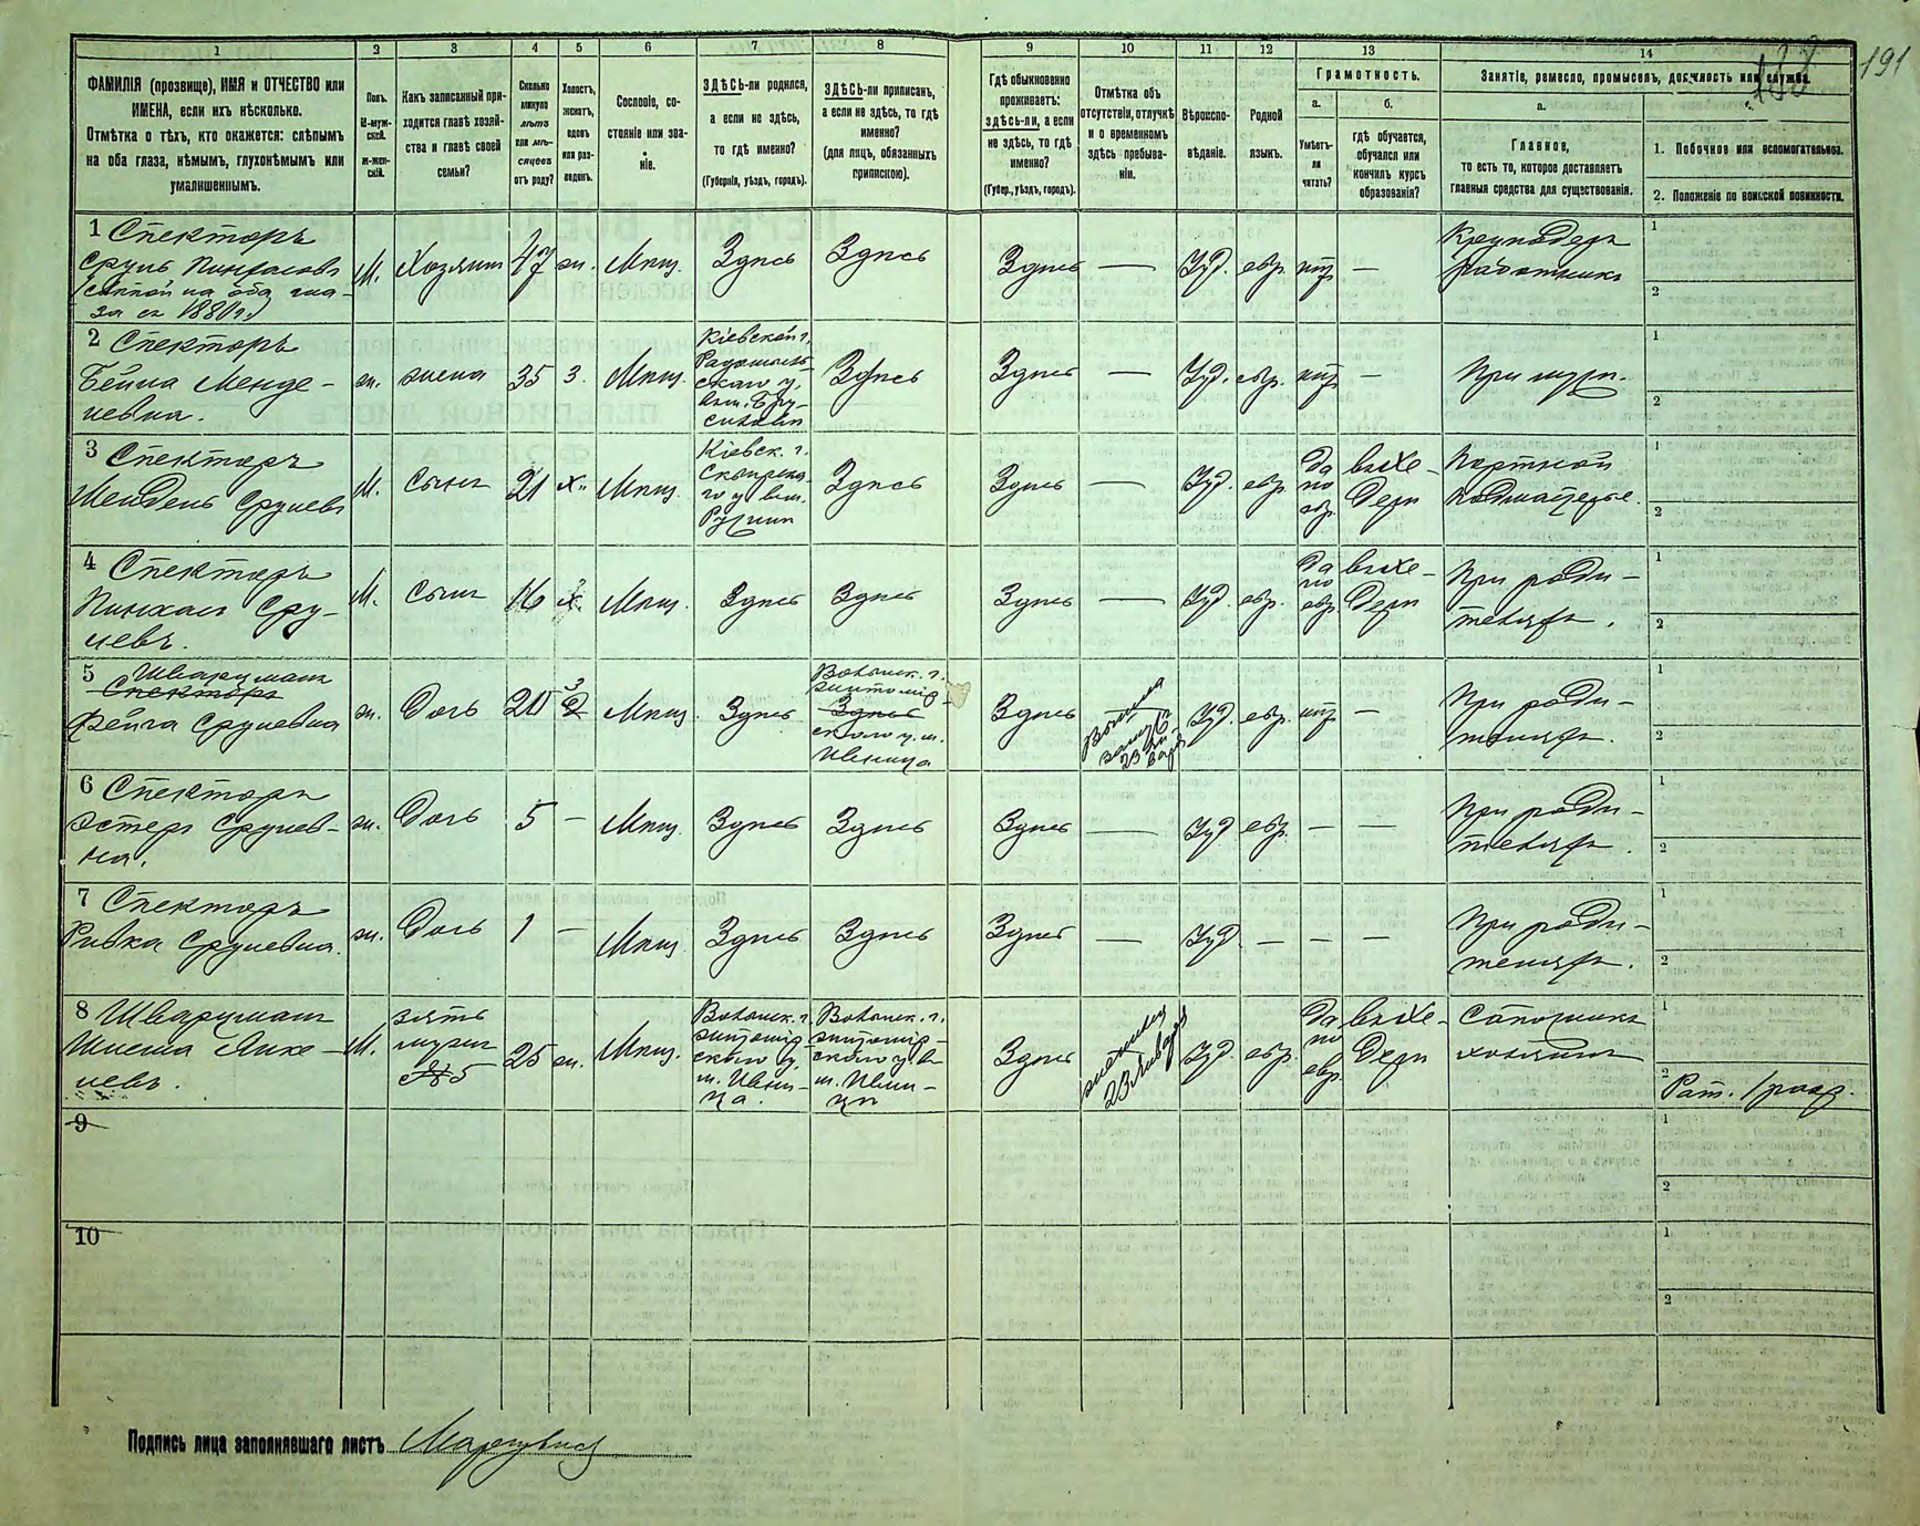 1 2 3 4 5 6 7 8 9 10 11 12 13 14
191
ФАМИЛІЯ (прозвище), ИМЯ и ОТЧЕСТВО или
ИМЕНА, если ихъ нѣсколько.
Отмѣтка о тѣхъ, кто окажется: слѣпымъ
на оба глаза, нѣмымъ, глухонѣмымъ или
умалишеннымъ.
Полъ.
М-муж-
ской.
Ж-жен-
скій.
Какъ записанный при-
ходится главѣ хозяй-
ства и главѣ своей
семьи?
Сколько
минуло
лѣтъ
или мѣ-
сяцевъ
отъ роду?
Холостъ,
женатъ,
вдовъ
или раз-
веденъ.
Сословіе, со-
стояніе или зва-
ніе.
ЗДѢСЬ-ли родился,
а если не здѣсь,
то гдѣ именно?
(Губернія, уѣздъ, городъ).
ЗДѢСЬ-ли приписанъ,
а если не здѣсь, то гдѣ
именно?
(для лицъ, обязанныхъ
припискою).
Гдѣ обыкновенно
проживаетъ:
здѣсь-ли, а если
не здѣсь, то гдѣ
именно?
(Губер., уѣздъ, городъ).
Отмѣтка объ
отсутствіи, отлучкѣ
и о временномъ
здѣсь пребыва-
ніи.
Вѣроиспо-
вѣданіе.
Родной
языкъ.
Грамотность.
а.
Умѣетъ-
ли
читать?
б.
гдѣ обучается,
обучался или
кончилъ курсъ
образованія?
Занятіе, ремесло, промыселъ, должность или служба.
а.
Главное,
то есть то, которое доставляетъ
главныя средства для существованія.
1. Побочное или вспомогательное.
2. Положеніе по воинской повинности.
1 Спекторъ
Сруль Пинхасовъ
(слѣпой на оба гла-
за съ 1880 г.)
М. Хозяинъ 47 ж. Мѣщ. Здѣсь Здѣсь Здѣсь — Іуд. евр. нѣт —
работникъ
1
2
2 Спекторъ
Бейла Менде-
левна.
ж. жена 35 з. Мѣщ.
Кіевской г.
Радомысль-
скаго у.
Здѣсь Здѣсь — Іуд. евр. нѣт —
При муж.
1
2
3 Спекторъ
Мендель Срулевъ
М. Сынъ 21 х. Мѣщ.
Кіевск. г.
Сквирска-
го у. м.
Ружин
Здѣсь Здѣсь — Іуд. евр.
да
по
евр.
въ хе-
дерѣ
Портной
подмастерье.
1
2
4 Спекторъ
Пинхасъ Сру-
левъ.
М. Сынъ 16 х. Мѣщ. Здѣсь Здѣсь Здѣсь — Іуд. евр.
да
по
евр.
въ хе-
дерѣ
При роди-
теляхъ.
1
2
5 Шварцманъ
Спекторъ
Фейга Срулевна
ж. Дочь 20 з Мѣщ. Здѣсь
Волынск. г.
Житомір-
Здѣсь
скаго у. м.
Ивница
Здѣсь
Вышла
замужъ
23 Ян-
варя
Іуд. евр. нѣт —
При роди-
теляхъ.
1
2
6 Спекторъ
Эстеръ Срулев-
на.
ж. Дочь 5 — Мѣщ. Здѣсь Здѣсь Здѣсь — Іуд. евр. — —
При роди-
теляхъ.
1
2
7 Спекторъ
Ривка Срулевна.
ж. Дочь 1 — Мѣщ. Здѣсь Здѣсь Здѣсь — Іуд. — — —
При роди-
теляхъ.
1
2
8 Шварцманъ
Янке-
левъ.
М.
зять
мужъ
№ 5
25 ж. Мѣщ.
Волынск. г.
Житомір-
скаго у.
м. Ивни-
ца.
Волынск. г.
Житомір-
скаго у.
м. Ивни-
цы
Здѣсь
23 Января
Іуд. евр.
да
по
евр.
въ хе-
дерѣ
Сапожникъ
хозяинъ
1
2
Рат. 1 разр.
9
1
2
10
1
2
Подпись лица заполнявшаго листъ